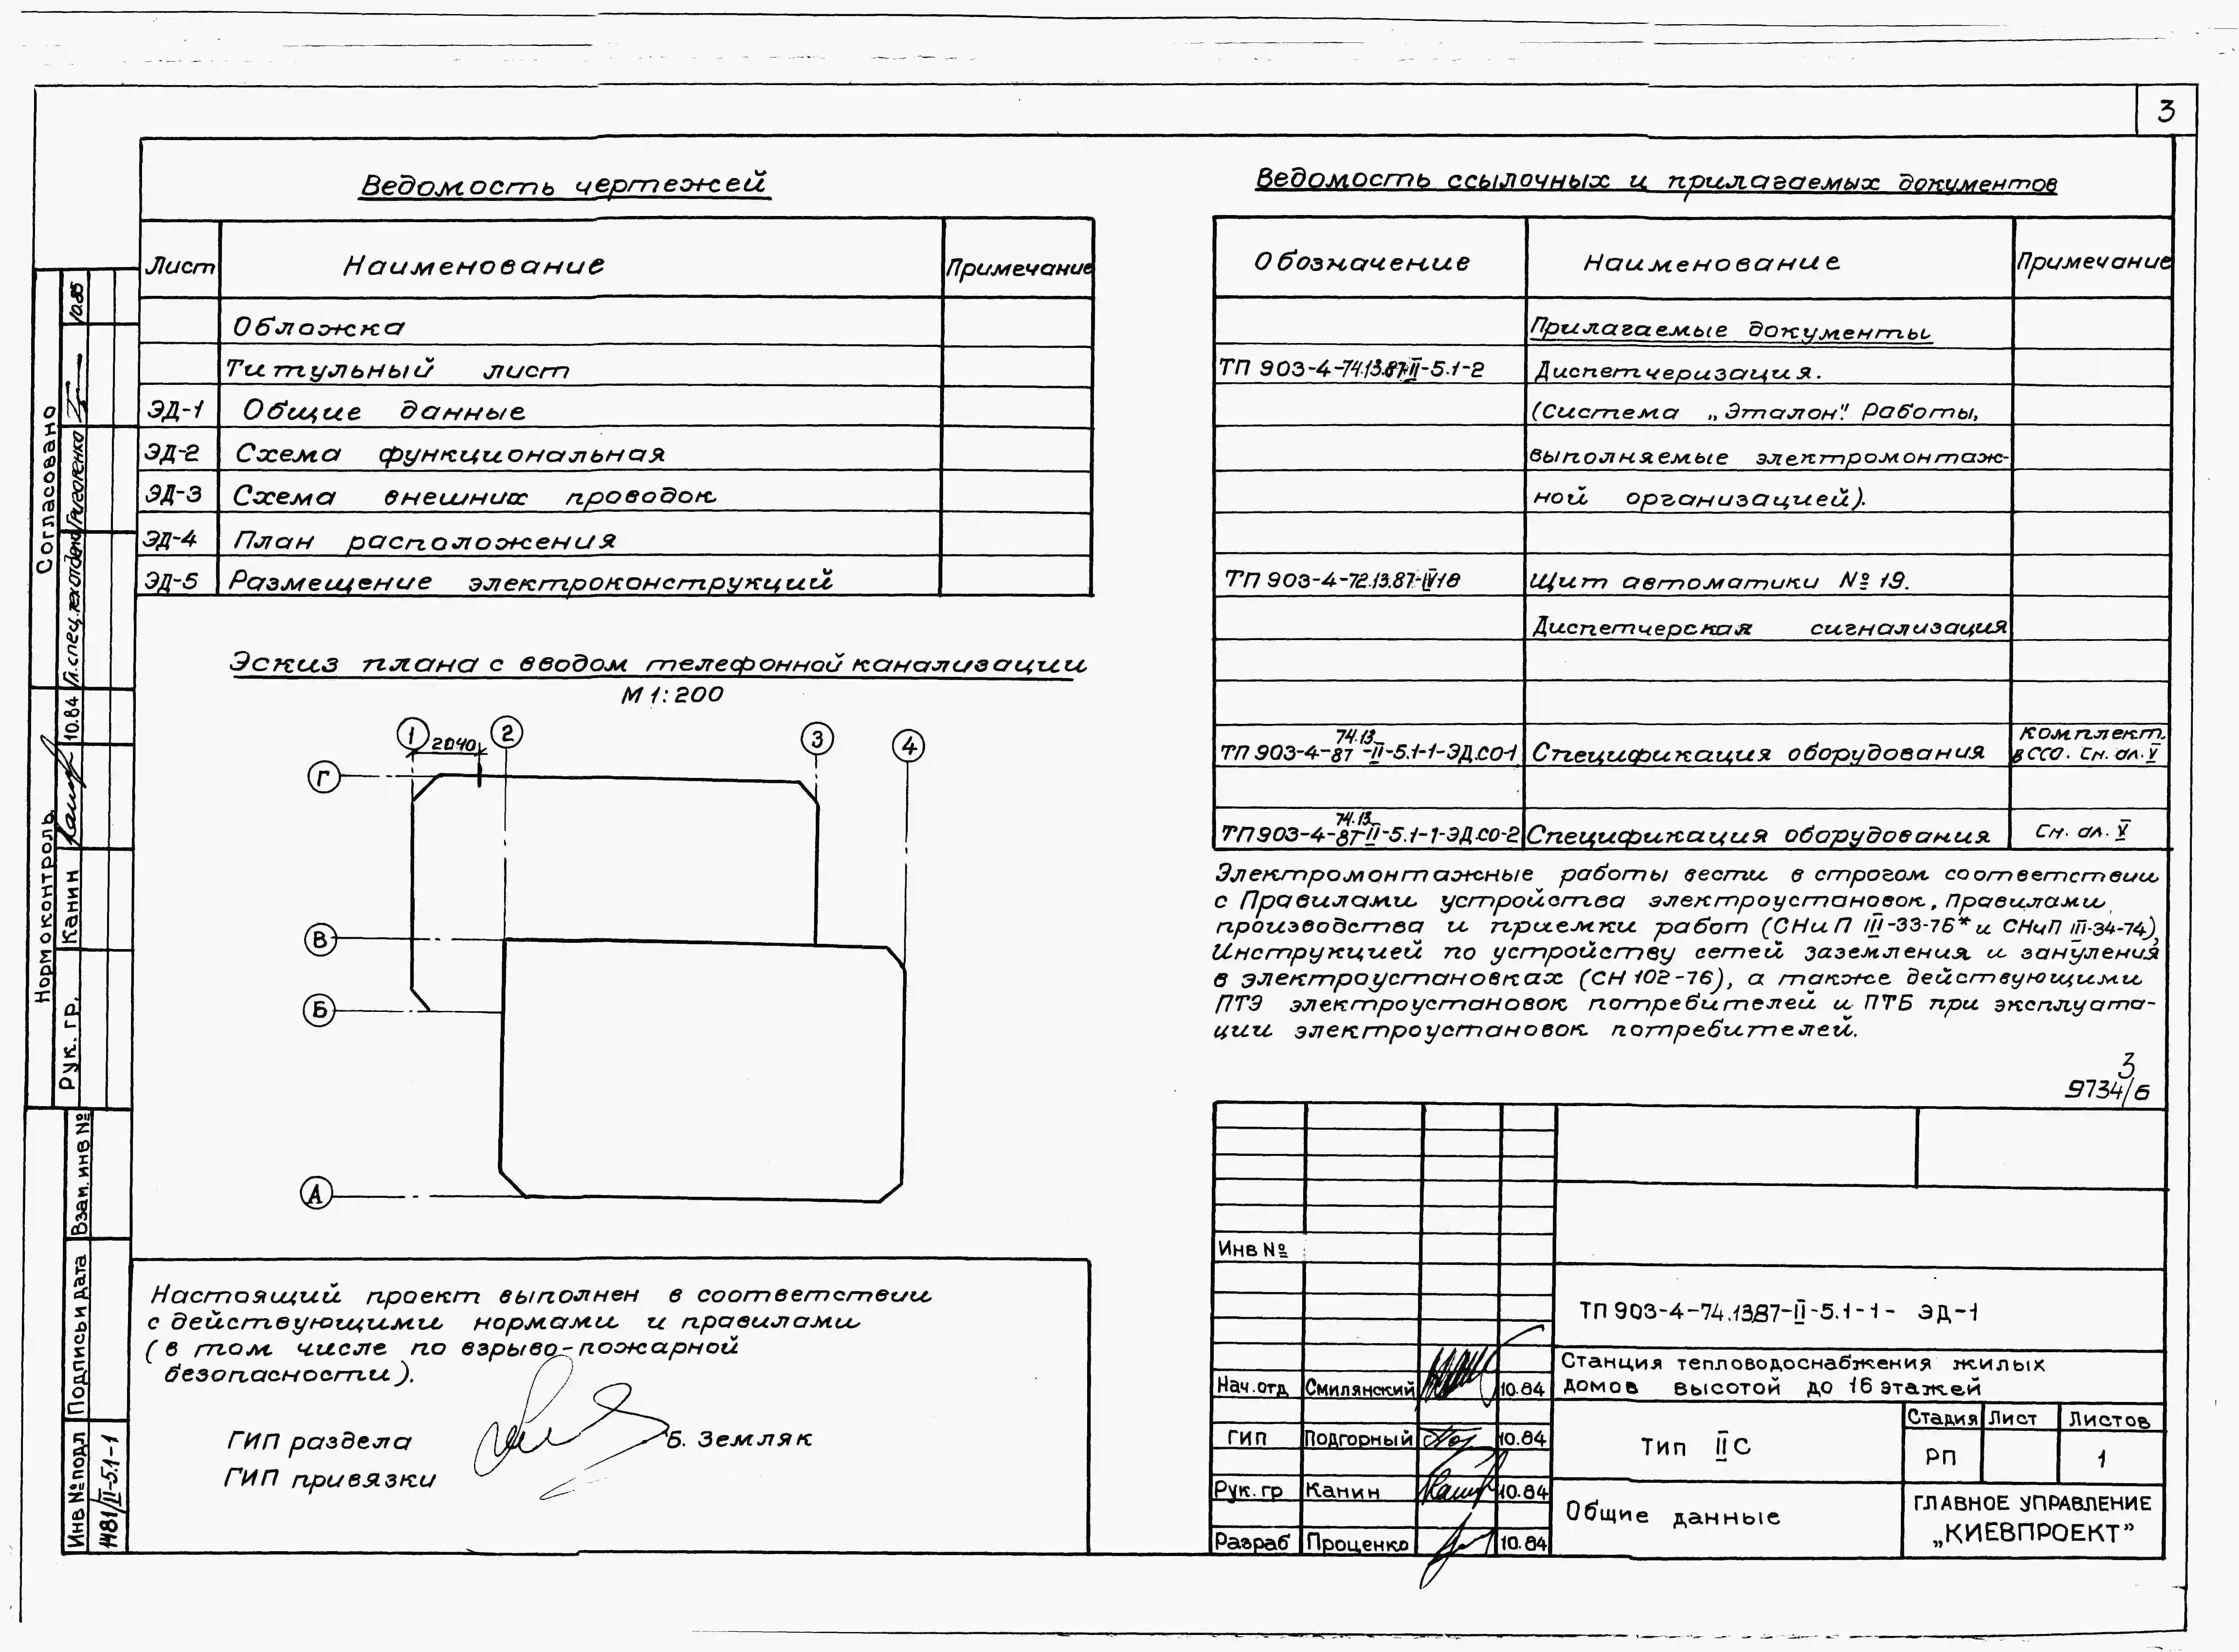 3
Ведомость чертежей
Лист Наименование Примечание
Обложка
Титульный лист
ЭД-1 Общие данные
ЭД-2 Схема функциональная
ЭД-3 Схема внешних проводок
ЭД-4 План расположения
ЭД-5 Размещение электроконструкций
Эскиз плана с вводом телефонной канализации
М 1:200
1 2 3 4
2040
Г
В
Б
А
Настоящий проект выполнен в соответствии
с действующими нормами и правилами
(в том числе по взрыво-пожарной
безопасности).
ГИП раздела Б. Земляк
ГИП привязки
Ведомость ссылочных и прилагаемых документов
Обозначение Наименование Примечание
Прилагаемые документы
ТП 903-4-74.13.87-II-5.1-2 Диспетчеризация.
(Система „Эталон". Работы,
выполняемые электромонтаж-
ной организацией).
ТП 903-4-72.13.87-IV18 Щит автоматики № 19.
Диспетчерская сигнализация
74.13 Комплект.
ТП 903-4-87-II-5.1-1-ЭД.СО-1 Спецификация оборудования в ССО. См. ал. V
74.13
ТП 903-4-87-II-5.1-1-ЭД.СО-2 Спецификация оборудования См. ал. V
Электромонтажные работы вести в строгом соответствии
с Правилами устройства электроустановок, Правилами
производства и приемки работ (СНиП III-33-76* и СНиП III-34-74),
Инструкцией по устройству сетей заземления и зануления
в электроустановках (СН 102-76), а также действующими
ПТЭ электроустановок потребителей и ПТБ при эксплуата-
ции электроустановок потребителей.
3
9734/6
Инв №
ТП 903-4-74.1387-II-5.1-1- ЭД-1
Станция тепловодоснабжения жилых
домов высотой до 16 этажей
Нач.отд Смилянский 10.84
ГИП Подгорный 10.84
Рук. гр Канин 10.84
Разраб Проценко 10.84
Тип IIС
Стадия Лист Листов
РП 1
Общие данные
ГЛАВНОЕ УПРАВЛЕНИЕ
„КИЕВПРОЕКТ"
Согласовано
Гл.спец.техотдела Григоренко 10.85
Нормоконтроль
Рук. гр. Канин 10.84
Взам. инв №
Подпись и дата
Инв № подл
1481/II-5.1-1